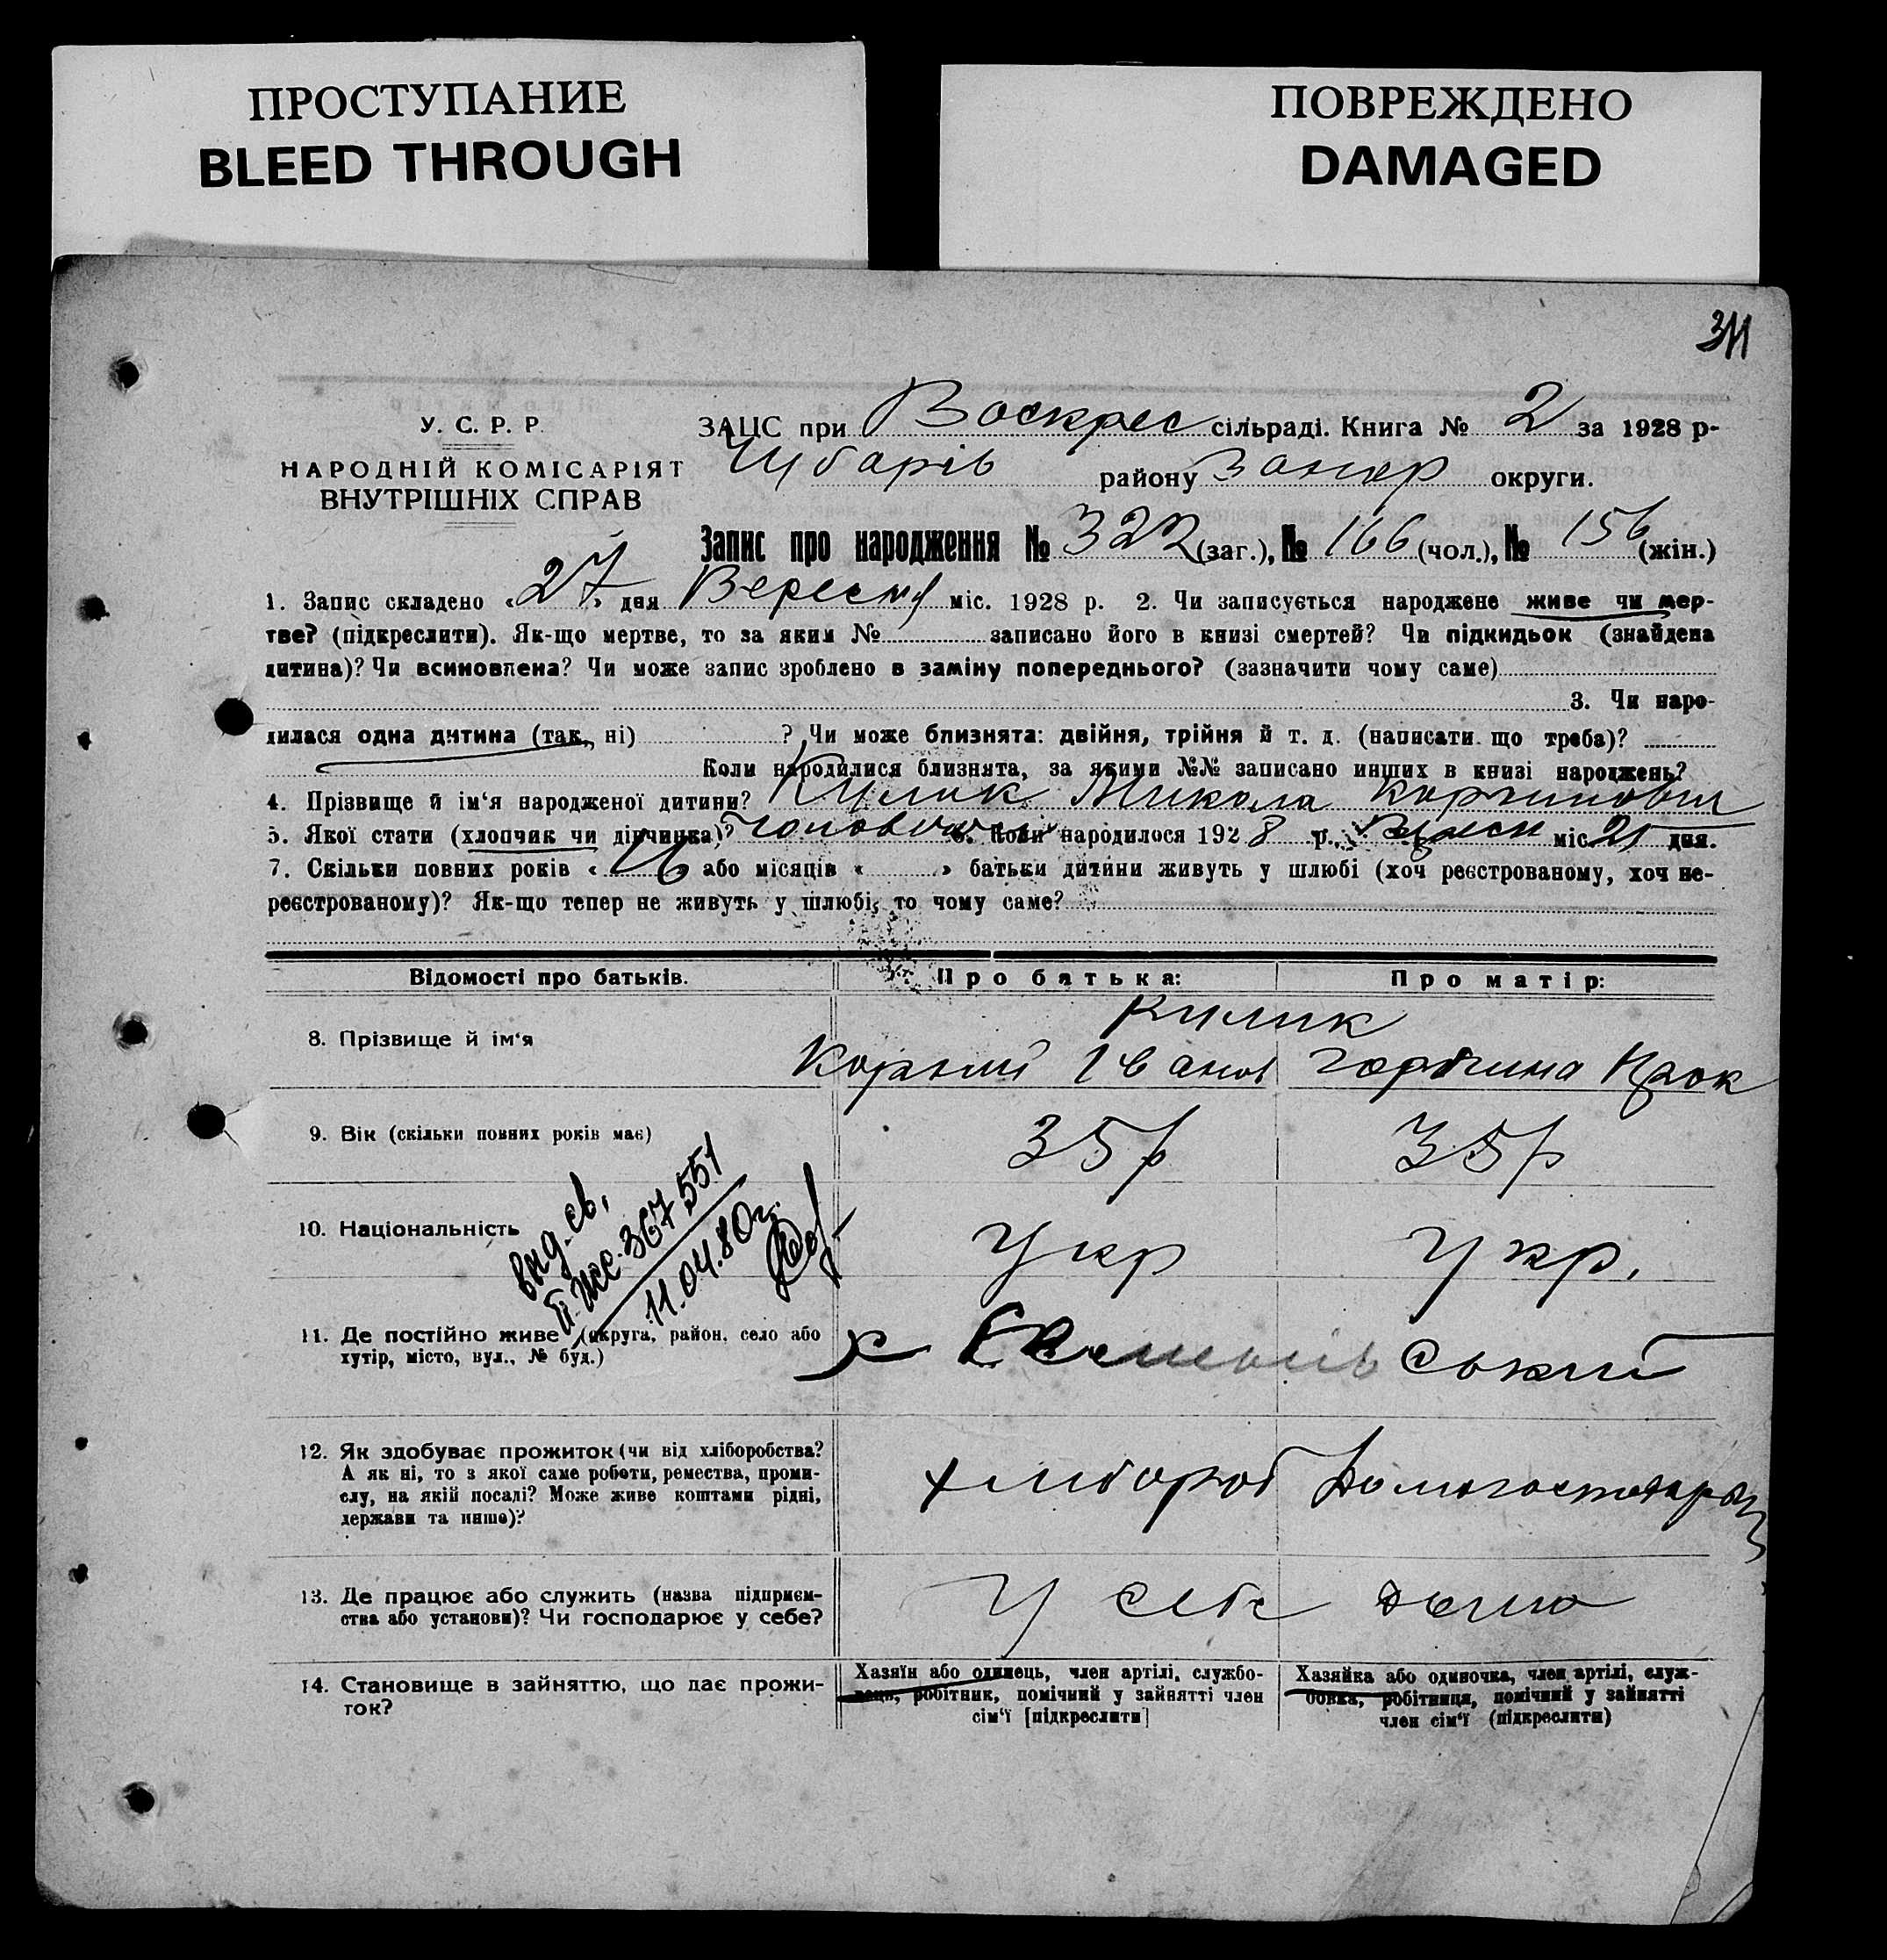 ПРОСТУПАНИЕ
BLEED THROUGH
ПОВРЕЖДЕНО
DAMAGED
311
У. С. Р. Р.
НАРОДНІЙ КОМІСАРІЯТ
ВНУТРІШНІХ СПРАВ
ЗАЦС при Воскрес сільраді. Книга № 2 за 1928 р-
Чубарів району Запор округи.
Запис про народження № 322 (заг.), № 166 (чол.), № 156 (жін.)
1. Запис складено « 27 » дня Вересня міс. 1928 р. 2. Чи записується народжене живе чи мер-
тве? (підкреслити). Як-що мертве, то за яким № записано його в книзі смертей? Чи підкидьок (знайдена
дитина)? Чи всиновлена? Чи може запис зроблено в заміну попереднього? (зазначити чому саме)
3. Чи наро-
дилася одна дитина (так, ні) ? Чи може близнята: двійня, трійня й т. д. (написати що треба)?
Коли народилися близнята, за якими №№ записано инших в книзі народжень?
4. Прізвище й ім'я народженої дитини? Кулик Микола
5. Якої стати (хлопчик чи дівчинка)? 6. Коли народилося 1928 р. міс. 25 дня.
7. Скільки повних років « 16 » або місяців « » батьки дитини живуть у шлюбі (хоч реєстрованому, хоч не-
реєстрованому)? Як-що тепер не живуть у шлюбі, то чому саме?
Відомості про батьків.
Про батька:
Про матір:
8. Прізвище й ім'я
Кулик
Корній Іванов
Горпина Прок
9. Вік (скільки повних років має)
35 р
35 р
10. Національність
Укр
Укр.
вид. св.
II-ЖС. 367551
11.04.80г.
11. Де постійно живе (округа, район, село або
хутір, місто, вул., № буд.)
х
ський
12. Як здобуває прожиток (чи від хліборобства?
А як ні, то з якої саме роботи, ремества, проми-
слу, на якій посаді? Може живе коштами рідні,
держави та инше)?
хлібороб
13. Де працює або служить (назва підприєм-
ства або установи)? Чи господарює у себе?
У себе дома
14. Становище в зайняттю, що дає прожи-
ток?
Хазяїн або одинець, член артілі, службо-
вець, робітник, помічний у зайнятті член
сім'ї [підкреслити]
Хазяйка або одиночка, член артілі, служ-
бовка, робітниця, помічний у зайнятті
член сім'ї (підкреслити)